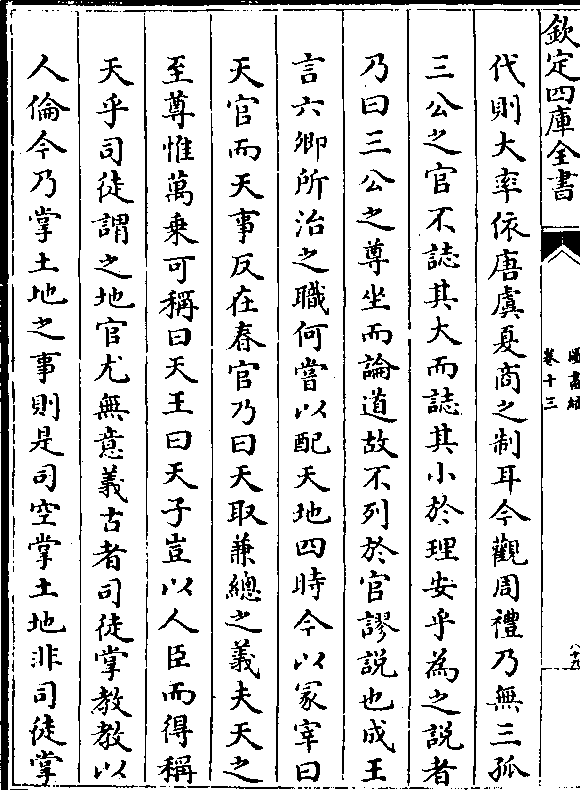 欽定四庫全書
卷十三
代則大率依唐虞夏商之制耳今觀周禮乃無三孤
三公之官不誌其大而誌其小於理安乎為之說者
乃曰三公之尊坐而論道故不列於官謬說也成王
言六卿所治之職何嘗以配天地四時今以冢宰曰
天官而天事反在春官乃曰天取兼總之義夫天之
至尊惟萬乗可稱曰天王曰天子豈以人臣而得稱
天乎司徒謂之地官尤無意義古者司徒掌教教以
人倫今乃掌土地之事則是司空掌土地非司徒掌